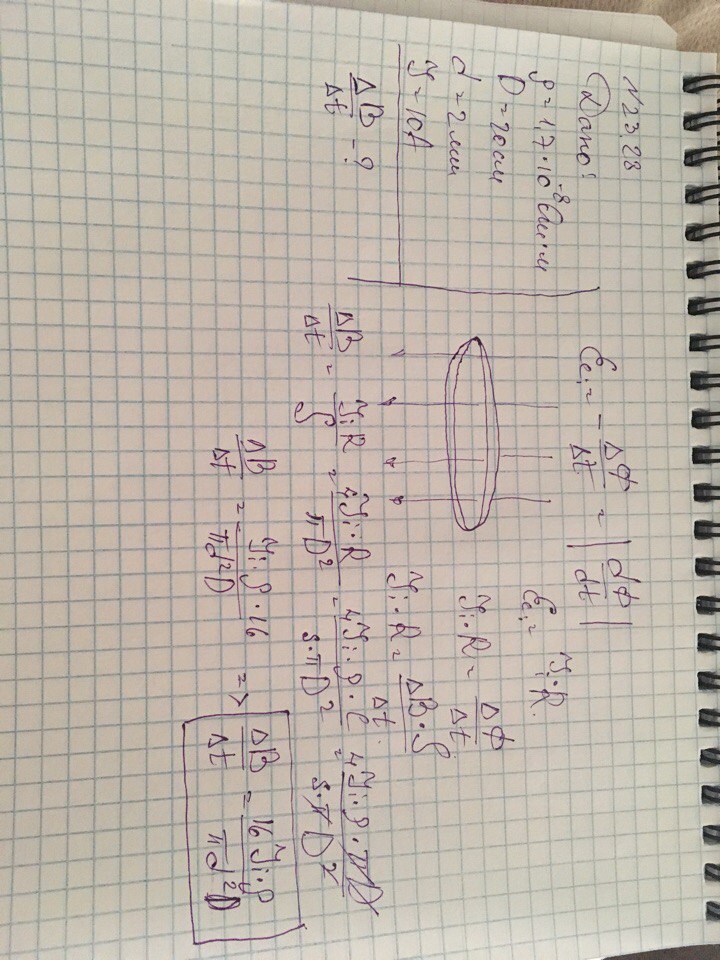 N2328
Дано:
ρ = 1,7·10⁻⁸ Ом·м
D = 20 см
d = 2 мм
J = 10A
ΔB/Δt - ?
Ɛci = - ΔΦ/Δt = |dΦ/dt|
Ɛci = Ji·R.
Ji·R = ΔΦ/Δt
Ji·R = ΔB·S/Δt
ΔB/Δt = Ji·R/S = 4Ji·R/πD² = 4Ji·ρ·l/s·πD² = 4Ji·ρ·πD/s·πD²
ΔB/Δt = Ji·ρ·16/πd²D => ΔB/Δt = 16Ji·ρ/πd²D